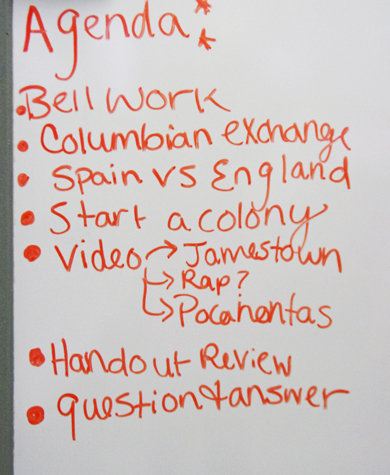 Agenda **
• Bell Work
• Columbian exchange
• Spain vs England
• Start a colony
• Video → Jamestown
→ Rap?
→ Pocahontas
• Handout Review
• question & answer